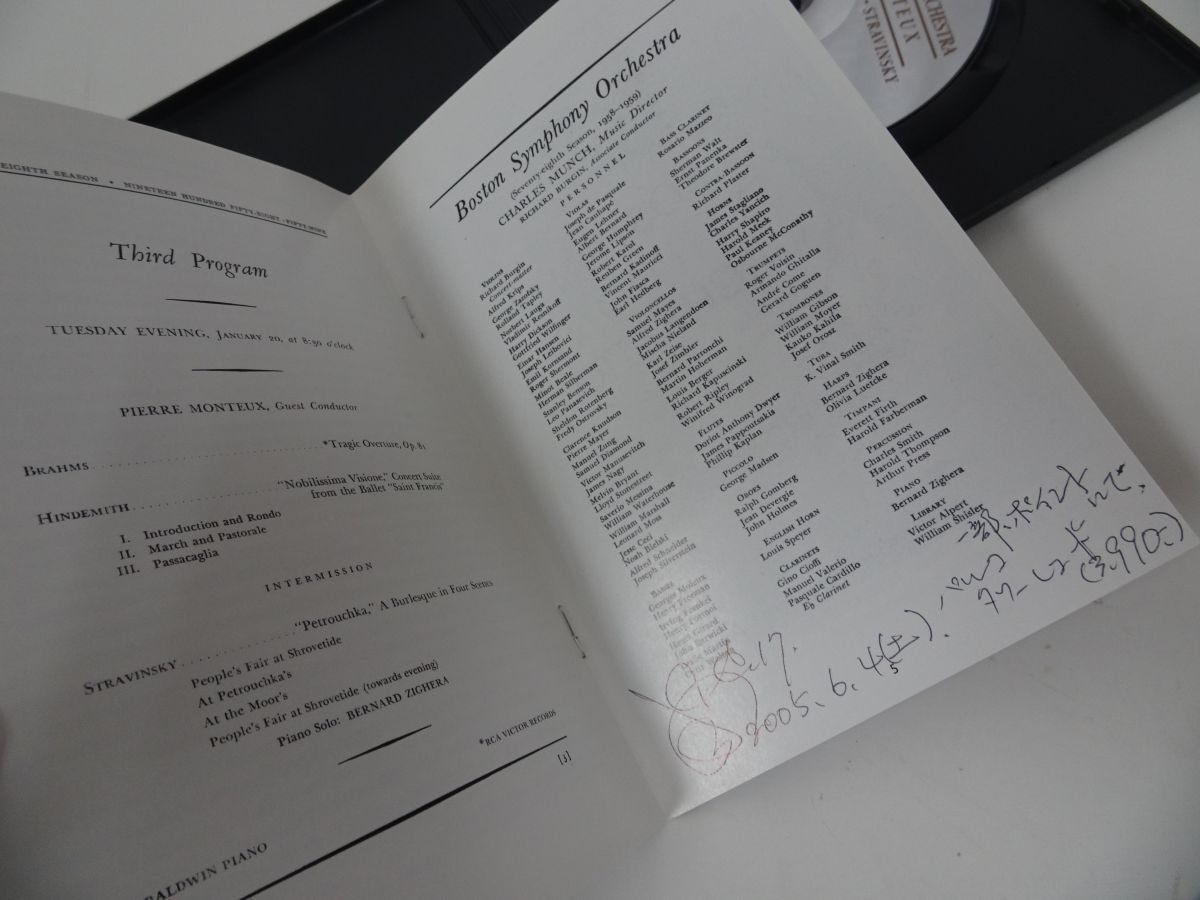 EIGHTH SEASON • NINETEEN HUNDRED FIFTY-EIGHT - FIFTY-NINE
Third Program
TUESDAY EVENING, JANUARY 20, at 8:30 o'clock
PIERRE MONTEUX, Guest Conductor
BRAHMS *Tragic Overture, Op. 81
HINDEMITH "Nobilissima Visione," Concert Suite
from the Ballet "Saint Francis"
I. Introduction and Rondo
II. March and Pastorale
III. Passacaglia
INTERMISSION
STRAVINSKY "Petrouchka," A Burlesque in Four Scenes
People's Fair at Shrovetide
At Petrouchka's
At the Moor's
People's Fair at Shrovetide (towards evening)
Piano Solo: BERNARD ZIGHERA
*RCA VICTOR RECORDS
[3]
BALDWIN PIANO
Boston Symphony Orchestra
(Seventy-eighth Season, 1958–1959)
CHARLES MUNCH, Music Director
RICHARD BURGIN, Associate Conductor
PERSONNEL
VIOLINS
Richard Burgin
Concert-master
Alfred Krips
George Zazofsky
Rolland Tapley
Norbert Lauga
Vladimir Resnikoff
Harry Dickson
Gottfried Wilfinger
Einar Hansen
Joseph Leibovici
Emil Kornsand
Roger Shermont
Minot Beale
Herman Silberman
Stanley Benson
Leo Panasevich
Sheldon Rotenberg
Fredy Ostrovsky
Clarence Knudson
Pierre Mayer
Manuel Zung
Samuel Diamond
Victor Manusevitch
James Nagy
Melvin Bryant
Lloyd Stonestreet
Saverio Messina
William Waterhouse
William Marshall
Leonard Moss
Jesse Ceci
Noah Bielski
Alfred Schneider
Joseph Silverstein
BASSES
Georges Moleux
Henry Freeman
Irving Frankel
Henry Portnoi
VIOLAS
Joseph de Pasquale
Jean Cauhapé
Eugen Lehner
Albert Bernard
George Humphrey
Jerome Lipson
Robert Karol
Reuben Green
Bernard Kadinoff
Vincent Mauricci
John Fiasca
Earl Hedberg
VIOLONCELLOS
Samuel Mayes
Alfred Zighera
Jacobus Langendoen
Mischa Nieland
Karl Zeise
Josef Zimbler
Bernard Parronchi
Martin Hoherman
Louis Berger
Richard Kapuscinski
Robert Ripley
Winifred Winograd
FLUTES
Doriot Anthony Dwyer
James Pappoutsakis
Phillip Kaplan
PICCOLO
George Madsen
OBOES
Ralph Gomberg
Jean Devergie
John Holmes
ENGLISH HORN
Louis Speyer
CLARINETS
Gino Cioffi
Manuel Valerio
Pasquale Cardillo
E♭ Clarinet
BASS CLARINET
Rosario Mazzeo
BASSOONS
Sherman Walt
Ernst Panenka
Theodore Brewster
CONTRA-BASSOON
Richard Plaster
HORNS
James Stagliano
Charles Yancich
Harry Shapiro
Harold Meek
Paul Keaney
Osbourne McConathy
TRUMPETS
Roger Voisin
Armando Ghitalla
André Come
Gerard Goguen
TROMBONES
William Gibson
William Moyer
Kauko Kahila
Josef Orosz
TUBA
K. Vinal Smith
HARPS
Bernard Zighera
Olivia Luetcke
TIMPANI
Everett Firth
Harold Farberman
PERCUSSION
Charles Smith
Harold Thompson
Arthur Press
PIANO
Bernard Zighera
LIBRARY
Victor Alpert
William Shisler
2005.6.4(土).
CHESTRA
TEUX
• STRAVINSKY